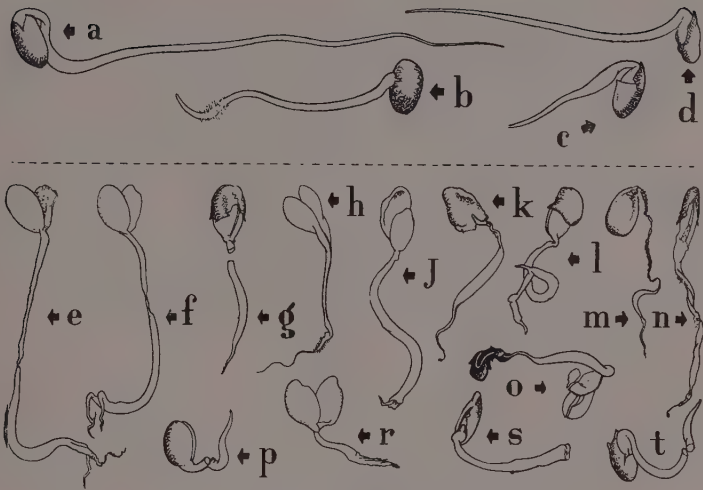 a
b
c
d
e
f
g
h
J
k
l
m
n
o
p
r
s
t